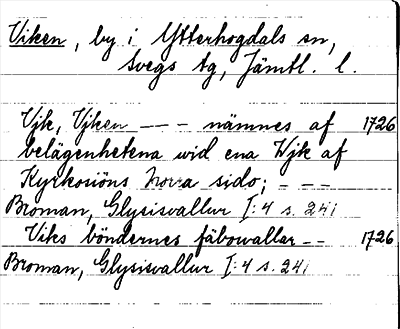 Viken, by i Ytterhogdals sn,
Svegs tg, Jämtl. l.
Vjk, Vjken --- nämnes af 1726
belägenhetena wid ena Wjk af
Kyrkosiöns Norra sido; ---
Broman, Glysisvallur I:4 s. 241
Viks böndernes fäbowallar -- 1726
Broman, Glysisvallur I:4 s. 241